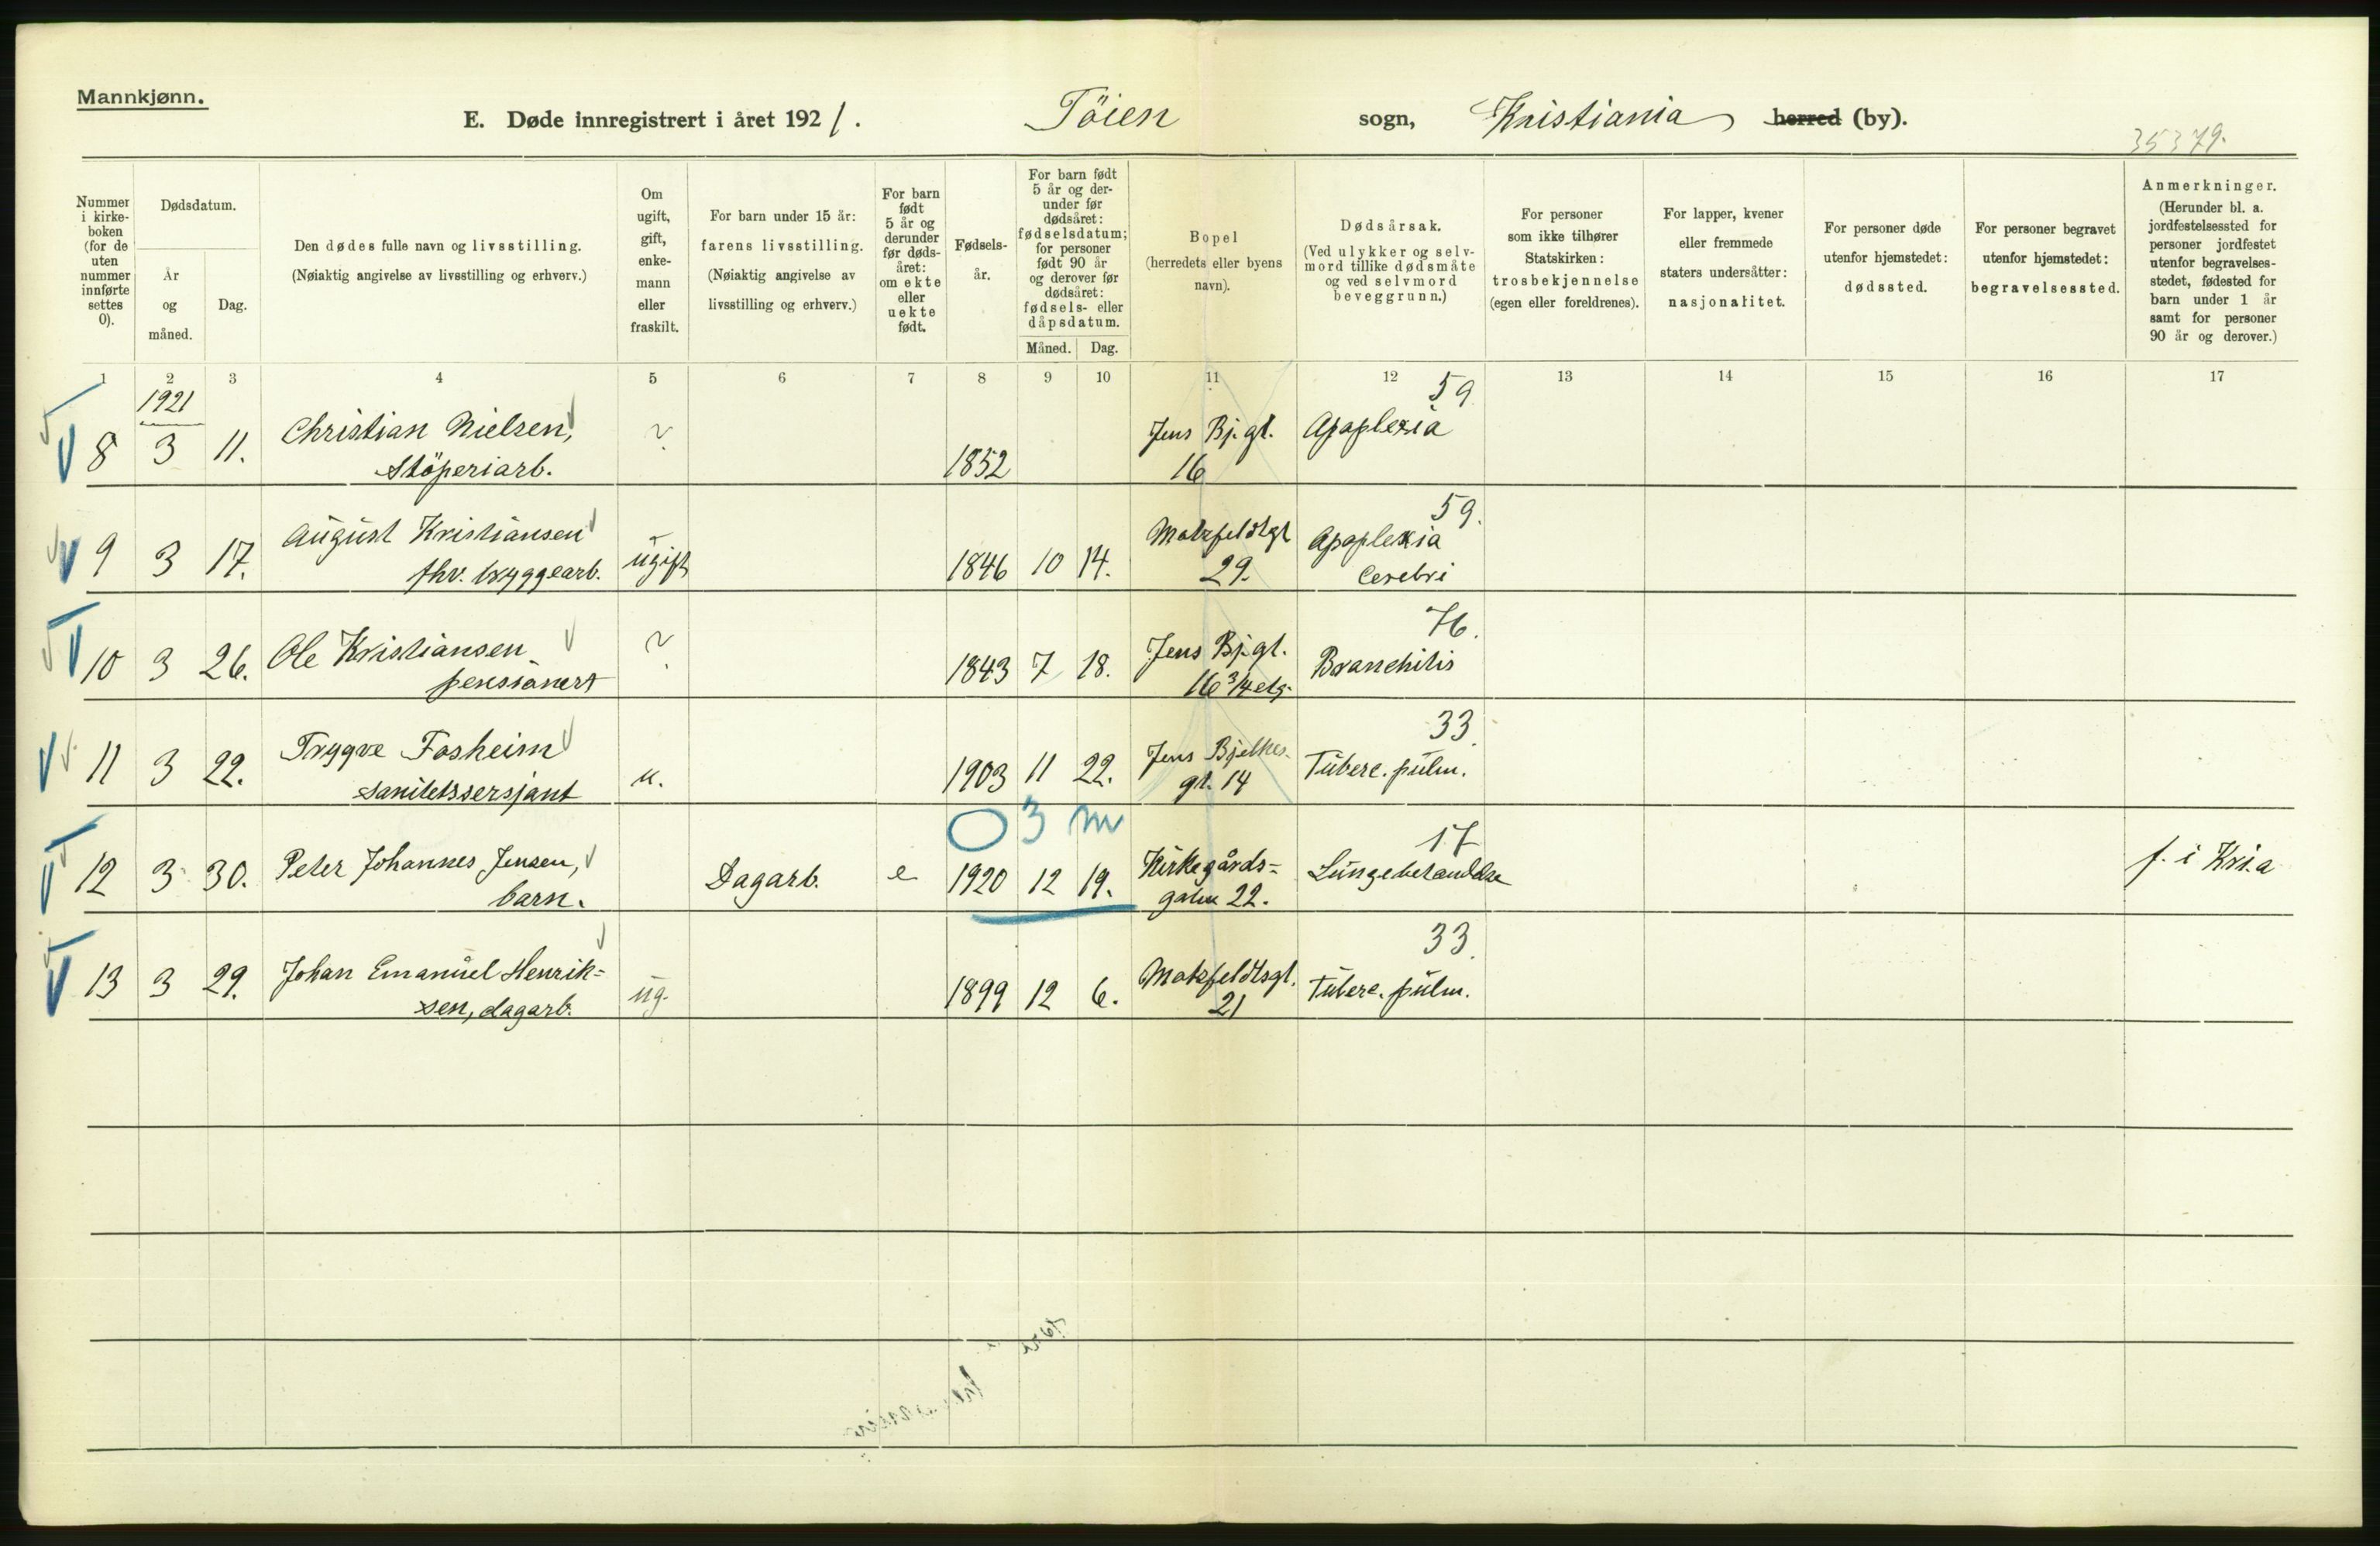 Mannkjønn.
E. Døde innregistrert i året 1921. Töien sogn, Kristiania herred (by).
35379.
Nummer i kirke- boken (for de uten nummer innførte settes 0).
Dødsdatum.
År og måned.
Dag.
Den dødes fulle navn og livsstilling.
(Nøiaktig angivelse av livsstilling og erhverv.)
Om ugift, gift, enke- mann eller fraskilt.
For barn under 15 år:
farens livsstilling.
(Nøiaktig angivelse av
livsstilling og erhverv.)
For barn født 5 år og derunder før døds- året: om ekte eller uekte født.
Fødsels- år.
For barn født 5 år og der- under før dødsåret: fødselsdatum; for personer født 90 år og derover før dødsåret: fødsels- eller dåpsdatum.
Måned. Dag.
Bopel
(herredets eller byens
navn).
Dødsårsak.
(Ved ulykker og selv- mord tillike dødsmåte og ved selvmord beveggrunn.)
For personer
som ikke tilhører
Statskirken:
trosbekjennelse
(egen eller foreldrenes).
For lapper, kvener
eller fremmede
staters undersåtter:
nasjonalitet.
For personer døde
utenfor hjemstedet:
dødssted.
For personer begravet
utenfor hjemstedet:
begravelsessted.
Anmerkninger.
(Herunder bl. a. jordfestelsessted for personer jordfestet utenfor begravelses- stedet, fødested for barn under 1 år samt for personer 90 år og derover.)
1 2 3 4 5 6 7 8 9 10 11 12 13 14 15 16 17
1921
59
8 3 11. Christian Nielsen, ? 1852 Jens Bj. gt. Apoplexia
Stöperiarb. 16
59.
9 3 17. August Kristiansen ugift 1846 10 14. Motzfeldtgt Apoplexia
fhv. bryggearb. 29. Cerebri
76.
10 3 26. Ole Kristiansen ? 1843 7 18. Jens Bj. gt. Bronchitis
pensionert 16 3/4 etg.
33.
11 3 22. Trygve Fosheim u. 1903 11 22. Jens Bjelkes- Tuberc. pulm.
sanitetssersjant gt. 14
0 3 m
17
12 3 30. Peter Johannes Jensen, Dagarb. e 1920 12 19. Kirkegårds= Lungebetændelse f. i Kria
barn. gaten 22.
33.
13 3 29. Johan Emanuel Henrik= ug. 1899 12 6. Motzfeldtsgt. Tuberc. pulm.
sen, dagarb. 21